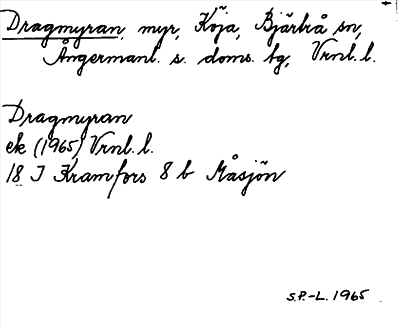 Dragmyran, myr, Köja, Bjärtrå sn,
Ångermanl. s. doms. tg, Vrnl. l.
Dragmyran
ek (1965) Vrnl. l.
18 I Kramfors 8 b Måsjön
S.P.-L. 1965